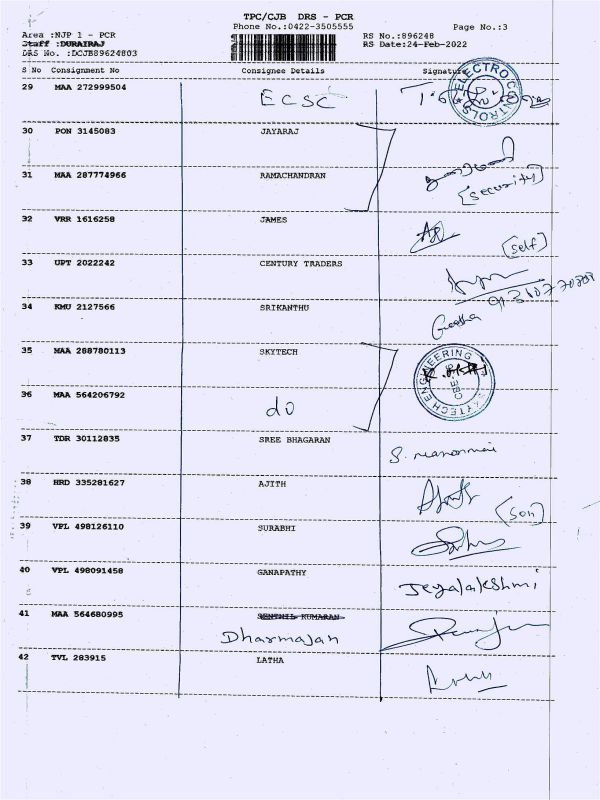 TPC/CJB DRS - PCR
Phone No.:0422-3505555
Page No.:3
Area :NJP 1 - PCR
RS No.:896248
Staff :DURAIRAJ
RS Date:24-Feb-2022
DRS No. :DCJB89624803
S No Consignment No Consignee Details Signature
29 MAA 272999504 ECSC
ELECTRO CONTROLS
30 PON 3145083 JAYARAJ
31 MAA 287774966 RAMACHANDRAN
[security]
32 VRR 1616258 JAMES
[self]
33 UPT 2022242 CENTURY TRADERS
34 KMU 2127566 SRIKANTHU
Geetha
35 MAA 288780113 SKYTECH
SKYTECH ENGINEERING
36 MAA 564206792 do
37 TDR 30112835 SREE BHAGARAN
S. manonmai
38 HRD 335281627 AJITH
[son]
39 VPL 498126110 SURABHI
40 VPL 498091458 GANAPATHY
Jeyalakshmi
41 MAA 564680995 SENTHIL KUMARAN
Dharmajan
42 TVL 283915 LATHA